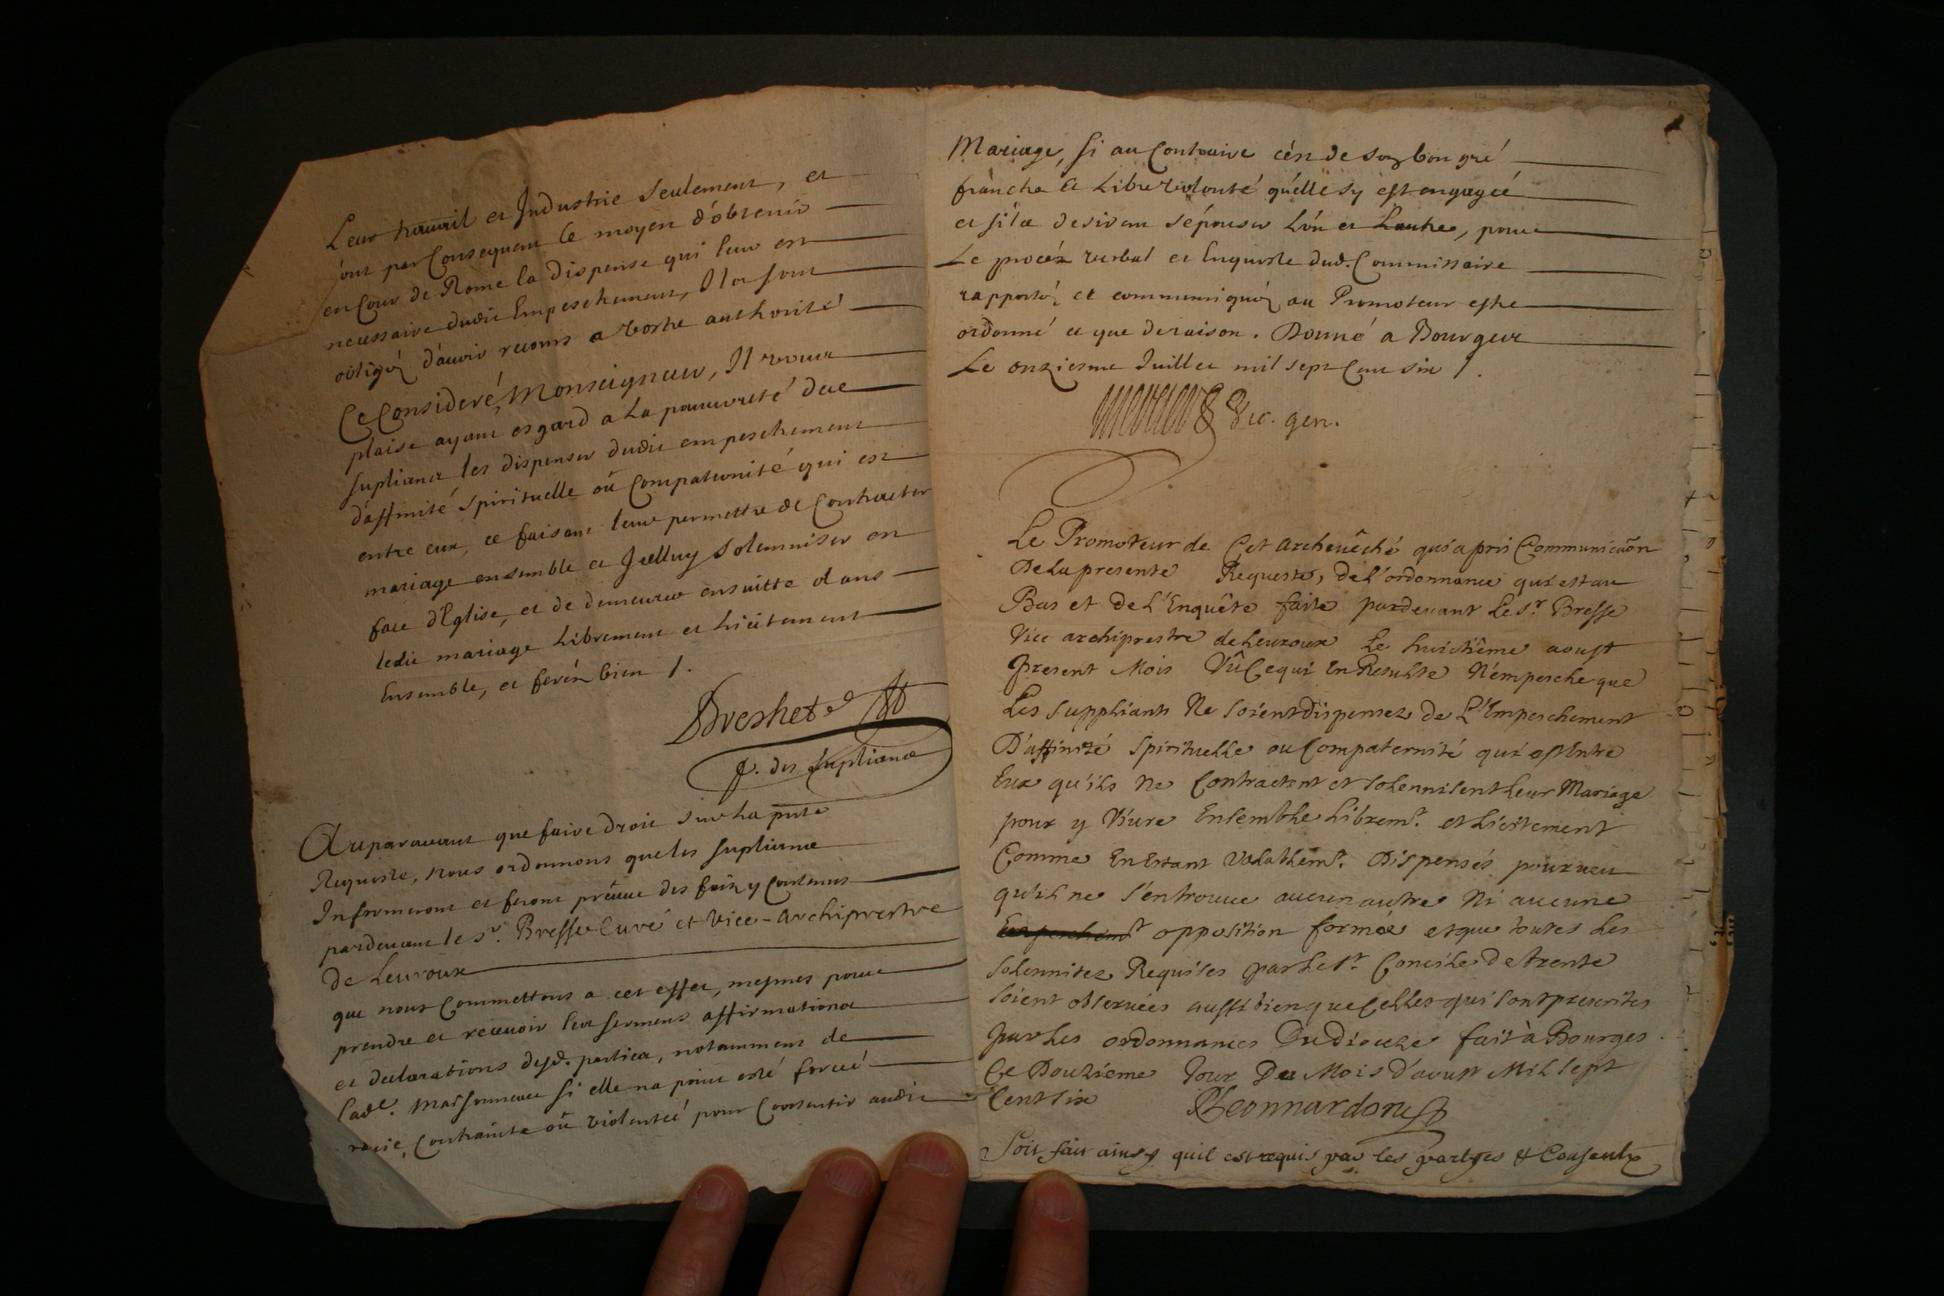 Leur travail et Industrie seulement, et
ont par Consequent le moyen d'obtenir
en Cour de Rome la dispense qui leur est
necessaire dudit Empeschement, Ils sont
obligéz d'avoir recours a vostre authorité
Ce Consideré, Monseigneur, Il vous
plaise ayant esgard a La pauvreté des
suplians les dispenser dudit empeschement
d'affinité spirituelle oû Compaternité qui est
entre eux, ce faisant leur permettre de Contracter
mariage ensemble et Icelluy solemniser en
face d'Eglise, et de demeurer ensuitte dans
ledit mariage Librement et Licitement
Ensemble, et feréz bien /.
p. des supliants
Auparavant que faire Droit sur La pnte
Requeste, nous ordonnons que les suplians
Informeront et feront preuve des faitz y Contenus
pardevant le sr. Bresse Curé et vice-archiprestre
de Levroux
que nous Commettons a cet effet, mesmes pour
prendre et recevoir leur serment affirmations
et declarations desd. parties, notamment de
lade. Maisonneuve si elle na point esté forcée
ravie, Contrainte oû violentée pour Consentir audit
Mariage, si au Contraire cést de son bon gré
franche et Libre volonté qu'elle sy est engagée
et silz desirent sépouser Lún et Lautre, pour
Le procéz verbal et Enqueste dud. Commissaire
rapportéz et communiquéz au Promoteur estre
ordonné ce que de raison. Donné a Bourges
Le onziesme Juillet mil sept Cent six /.
Vic. gen.
Le Promoteur de Cet archevêché qui a pris Communicaõn
De La presente Requeste, de l'ordonnance qui est au
Bas et de L'Enquête faite pardevant Le Sr. Bresse
Vice archiprestre de Levroux Le huictiême aoust
present Mois Vû Ce qui En Resulte N'empesche que
Les suppliants Ne soient dispensez de L'Empeschement
D'affinité spirituelle ou Compaternité qui est Entre
Eux qu'ils Ne Contractent et solennisent Leur Mariage
pour y Vivre Ensemble Librem.t et Licitement
Comme En Estant Valablem.t Dispensés pourveu
qu'il ne s'entrouve aucun autre Ni aucune
opposition formée et que toutes Les
solennitez Requises par Le St. Concile de trente
soient observées aussi bien que Celles qui sont prescrites
par Les ordonnances Du diocese fait à Bourges
Ce Douzieme Jour Du Mois d'aoust Mil sept
Cent six
Soit fait ainsy quil est requis par les partyes et Consenty